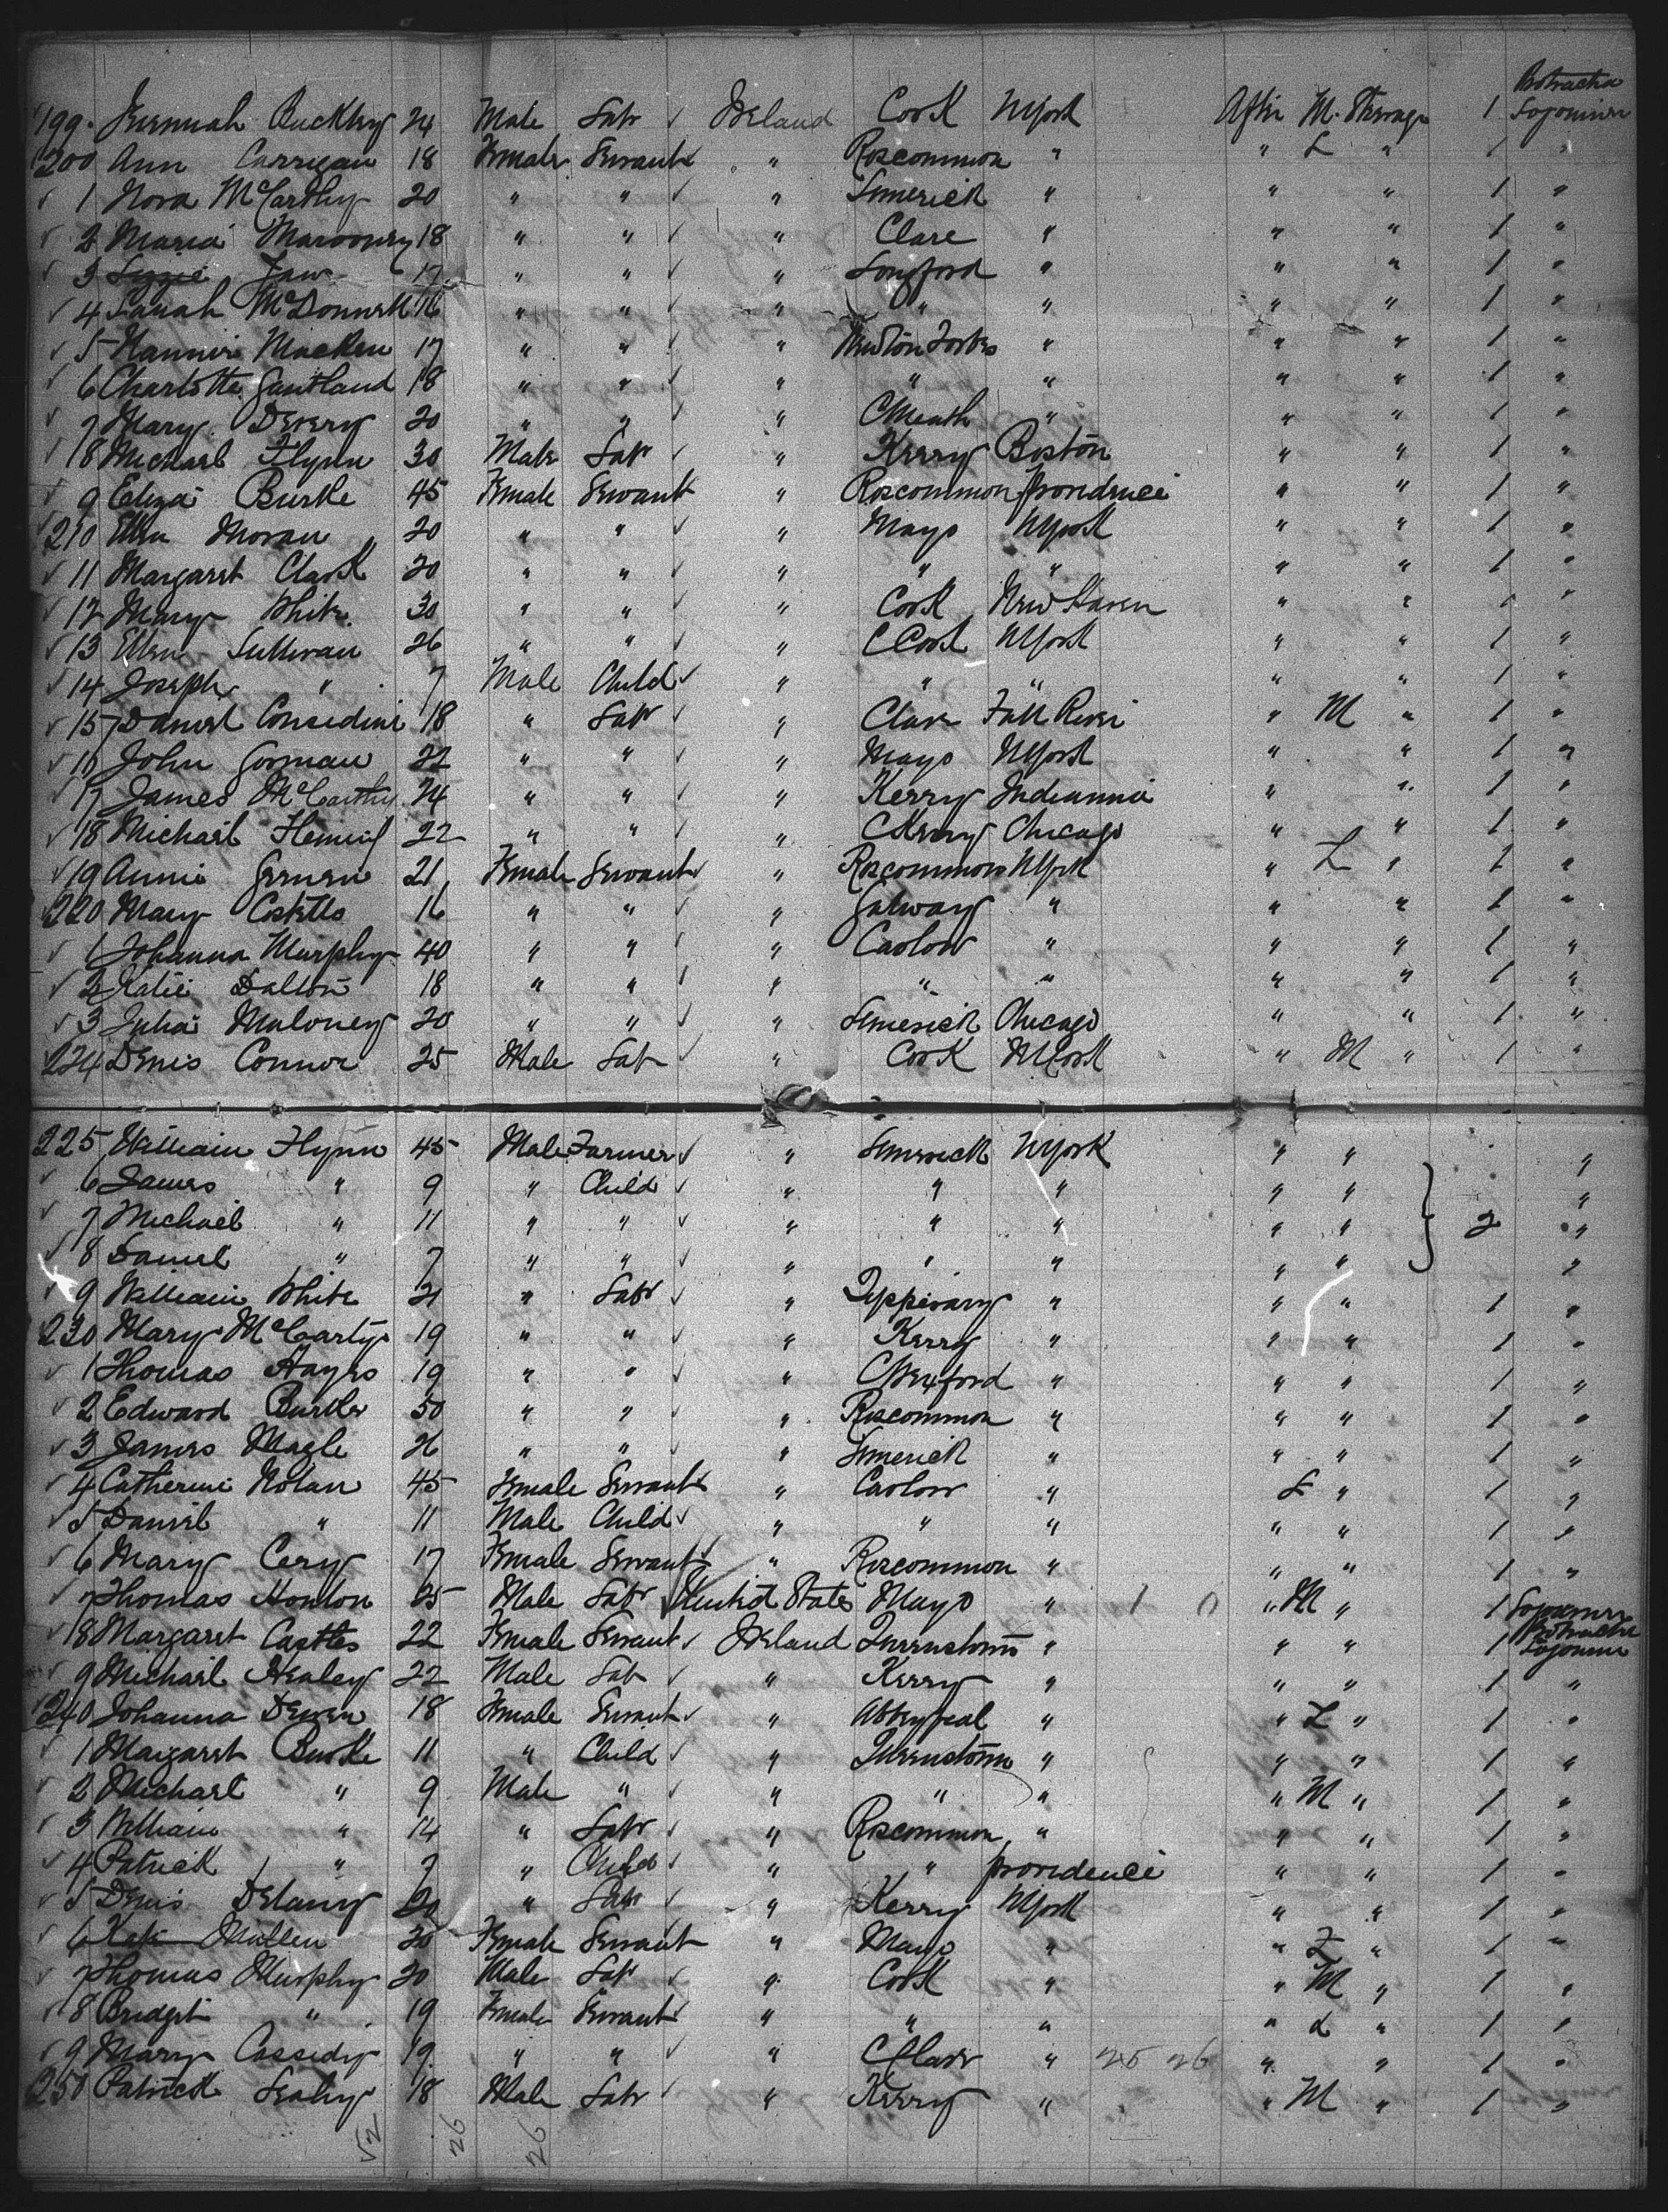 Protracted
199. Jeremiah Buckley 24 Male Labr Ireland Cork NYork After M. Steerage 1 Sojourner
200 Ann Carrigan 18 Female Servant " Roscommon " " L " 1 "
1 Nora McCarthy 20 " " " Limerick " " " 1 "
2 Maria Marooney 18 " " " Clare " " " 1 "
3 Lizzie 17 " " " Longford " " " 1 "
4 Sarah McDonnell 16 " " " " " " " 1 "
5 Nannie Macken 17 " " " Newton Forbes " " " 1 "
6 Charlotte Gautland 18 " " " " " " " 1 "
7 Mary Devery 20 " " " CMeath " " " 1 "
18 Michael Flynn 30 Male Labr " Kerry Boston " " 1 "
9 Eliza Burke 45 Female Servant " Roscommon Providence " " 1 "
210 Ellen Moran 20 " " " Mayo NYork " " 1 "
11 Margaret Clark 20 " " " " " " " 1 "
12 Mary White 30 " " " Cork New Haven " " 1 "
13 Ellen Sullivan 26 " " " CCork NYork " " 1 "
14 Joseph " 7 Male Child " " " " " 1 "
15 Daniel Considine 18 " Labr " Clare Fall River " M " 1 "
16 John Gorman 22 " " " Mayo NYork " " 1 "
17 James McCarthy 24 " " " Kerry Indianna " " 1 "
18 Michael 22 " " " CKerry Chicago " " 1 "
19 Annie 21 Female Servant " Roscommon NYork " L " 1 "
220 Mary Costello 16 " " " Galway " " " 1 "
1 Johanna Murphy 40 " " " Carlow " " " 1 "
2 Katie Dalton 18 " " " " " " " 1 "
3 Julia Maloney 20 " " " Limerick Chicago " " 1 "
224 Denis Connor 25 Male Labr " Cork NYork " M " 1 "
225 William Flynn 45 Male Farmer " Limerick NYork " " "
6 James " 9 " Child " " " " " "
7 Michael " 11 " " " " " " " 2 "
8 Daniel " 7 " " " " " " " "
9 William White 21 " Labr " Tipperary " " " 1 "
230 Mary McCarty 19 " " " Kerry " " " 1 "
1 Thomas Hayes 19 " " " CWexford " " " 1 "
2 Edward Burke 50 " " " Roscommon " " " 1 "
3 James Magle 26 " " " Limerick " " " 1 "
4 Catherine Nolan 45 Female Servant " Carlow " L " 1 "
5 Daniel " 11 Male Child " " " " " 1 "
6 Mary Cery 17 Female Servant " Roscommon " " " 1 "
7 Thomas Honlon 25 Male Labr United States Mayo " 1 0 " M " 1 Sojourner
18 Margaret Castles 22 Female Servant Ireland Queenstown " " " 1 Protracted Sojourner
9 Michael Healey 22 Male Labr " Kerry " " " 1 "
240 Johanna Dewen 18 Female Servant " Abbyfeal " " L " 1 "
1 Margaret Burke 11 " Child " Queenstown " " " 1 "
2 Michael " 9 Male " " " " " M " 1 "
3 William " 14 " Labr " Roscommon " " " 1 "
4 Patrick " 7 " Child " " Providence " " 1 "
5 Denis Delany 20 " Labr " Kerry NYork " " 1 "
6 Kate Mullen 30 Female Servant " Mayo " " L " 1 "
7 Thomas Murphy 20 Male Labr " Cork " " M " 1 "
8 Bridget " 19 Female Servant " " " " L " 1 "
9 Mary Cassidy 19 " " " CClare " 25 26 " " 1 "
250 Patrick Leahy 18 Male Labr " Kerry " " M " 1 "
52 26 26